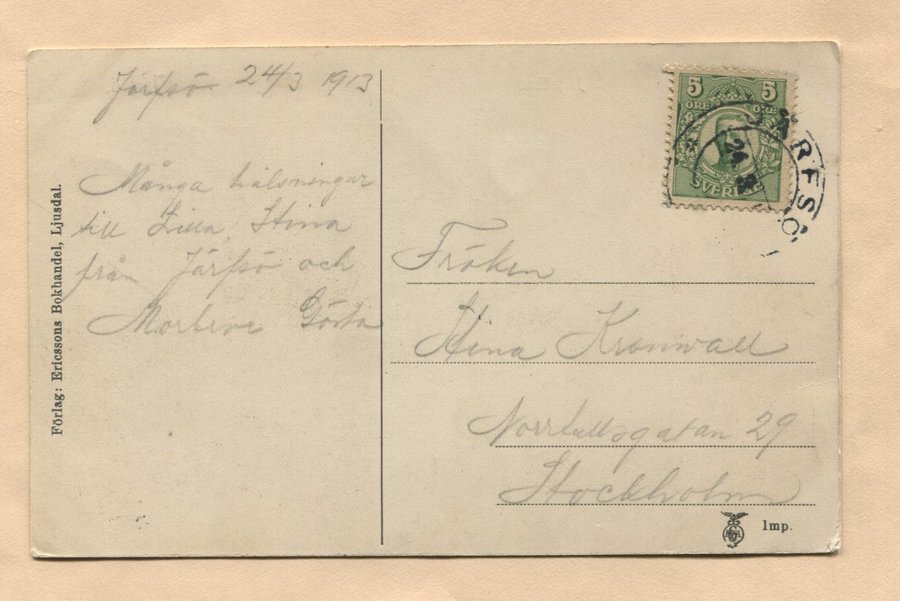 Järfsö 24/3 1913
Många hälsningar
till Lilla Stina
från Järfsö och
Morbror Gösta
Förlag: Ericssons Bokhandel, Ljusdal.
5 5
ÖRE ÖRE
SVERIGE
JÄRFSÖ
24
Fröken
Stina Kronwall
Norrtullsgatan 29
Stockholm
Imp.